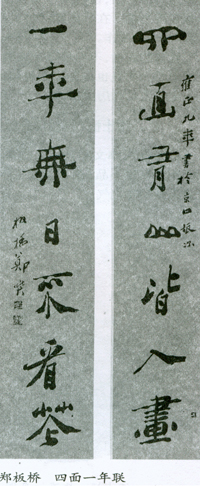 四面青山皆入畫
雍正九年書於京口
一年無日不看花
板橋鄭燮
郑板桥 四面一年联